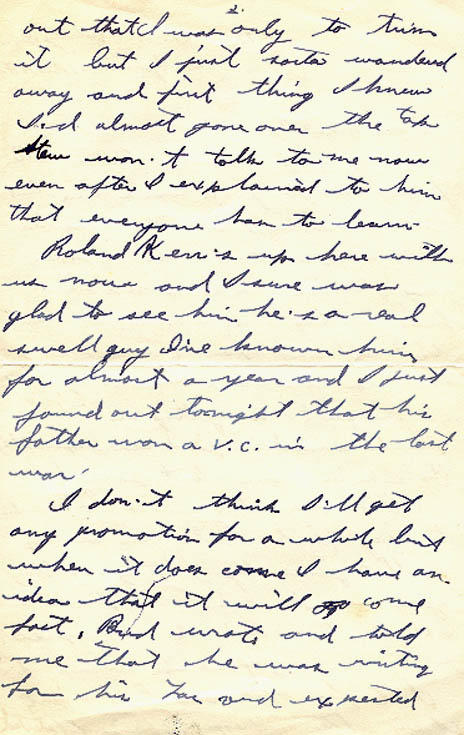 2.
out that I was only to trim
it but I just sorta wandered
away and first thing I knew
I'd almost gone over the top
Stew won't talk to me now
even after I explained to him
that everyone has to learn.
Roland Kerr's up here with
us now and I sure was
glad to see him he's a real
swell guy I've known him
for almost a year and I just
found out tonight that his
father won a V.C. in the last
war.
I don't think I'll get
any promotion for a while but
when it does come I have an
idea that it will come
fast, Bud wrote and told
me that he was writing
for his and expected